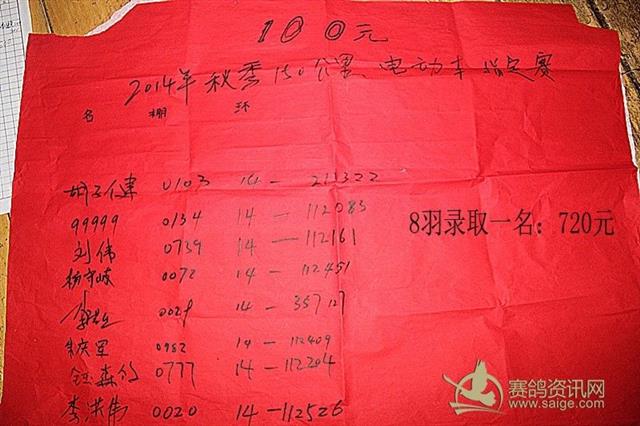 100元
2014年秋季150公里电动车指定赛
名 棚 环
胡子健 0103 14-211322
99999 0134 14-112085
刘伟 0739 14-112161
杨守岐 0072 14-112451
0029 14-357127
朱庆军 0982 14-112409
钰森竹 0777 14-112204
李洪伟 0020 14-112526
8羽录取一名：720元
赛鸽资讯网
www.saige.com